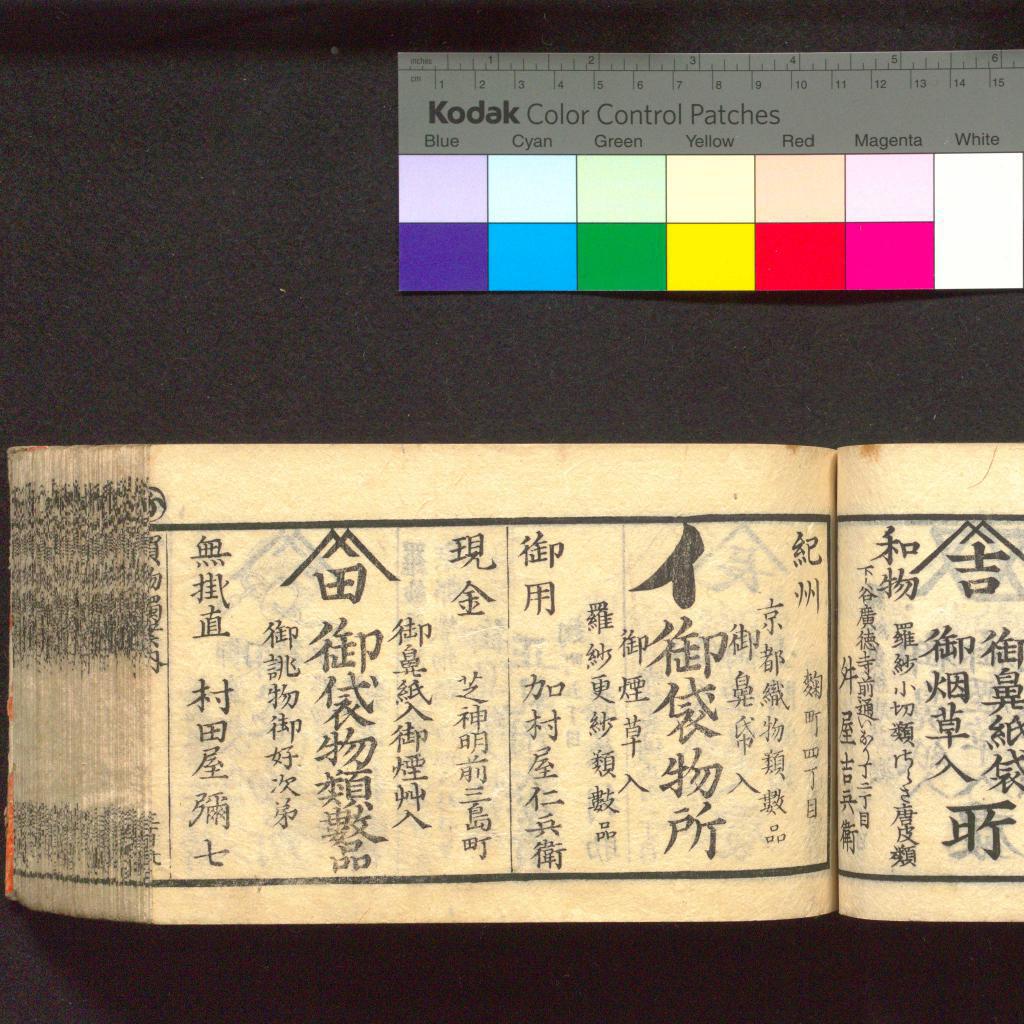 inches
1 2 3 4 5 6
cm
1 2 3 4 5 6 7 8 9 10 11 12 13 14 15
Kodak Color Control Patches
Blue Cyan Green Yellow Red Magenta White
御鼻紙袋
吉
御烟草入
所
和物
羅紗小切類
唐皮類
下谷廣徳寺前通
二丁目
屋吉兵衛
紀州
麹町四丁目
京都織物類數品
御鼻帋入
イ
御袋物所
御煙草入
羅紗更紗類數品
御用
加村屋仁兵衛
現金
芝神明前三島町
御鼻紙入御煙艸入
田
御袋物類數品
御誂物御好次弟
無掛直
村田屋彌七